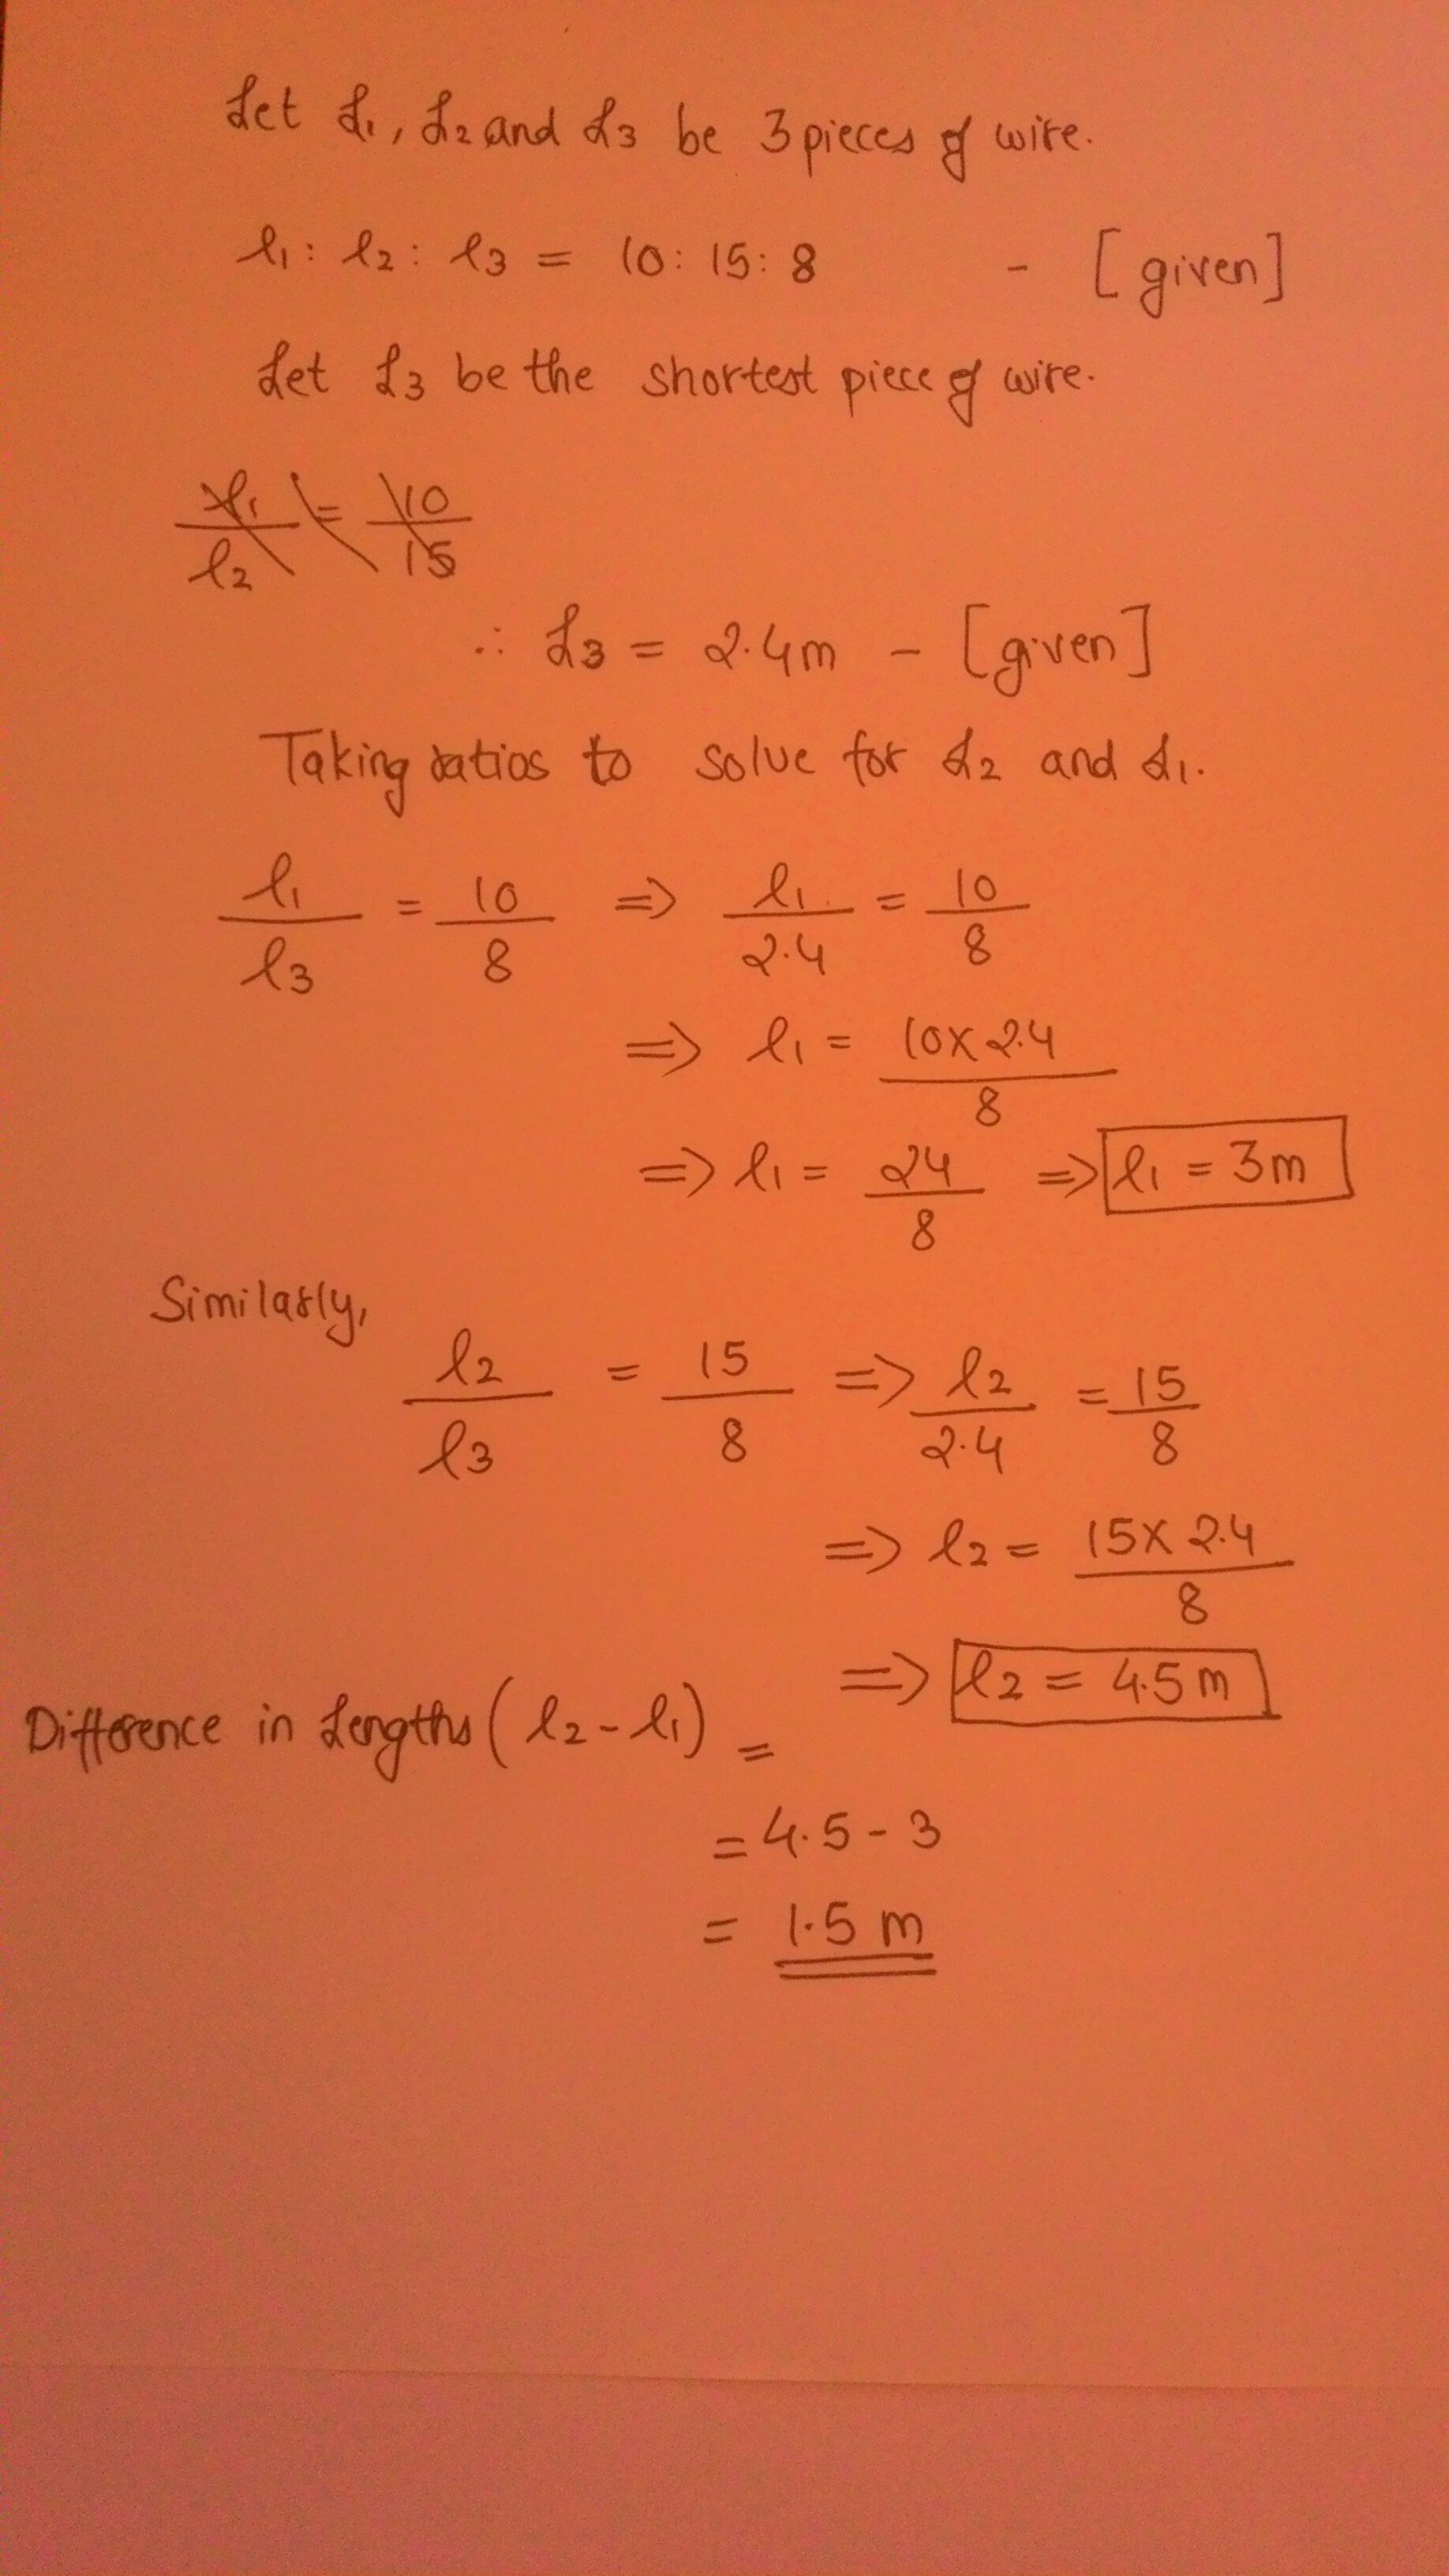 Let L1, L2 and L3 be 3 pieces of wire.
l1 : l2 : l3 = 10 : 15 : 8 - [given]
Let L3 be the shortest piece of wire.
l1/l2 = 10/15
∴ L3 = 2.4m - [given]
Taking ratios to solve for L2 and L1.
l1/l3 = 10/8 => l1/2.4 = 10/8
=> l1 = 10x2.4/8
=> l1 = 24/8 => l1 = 3m
Similarly,
l2/l3 = 15/8 => l2/2.4 = 15/8
=> l2 = 15x2.4/8
=> l2 = 4.5m
Difference in Lengths (l2 - l1) =
= 4.5 - 3
= 1.5 m